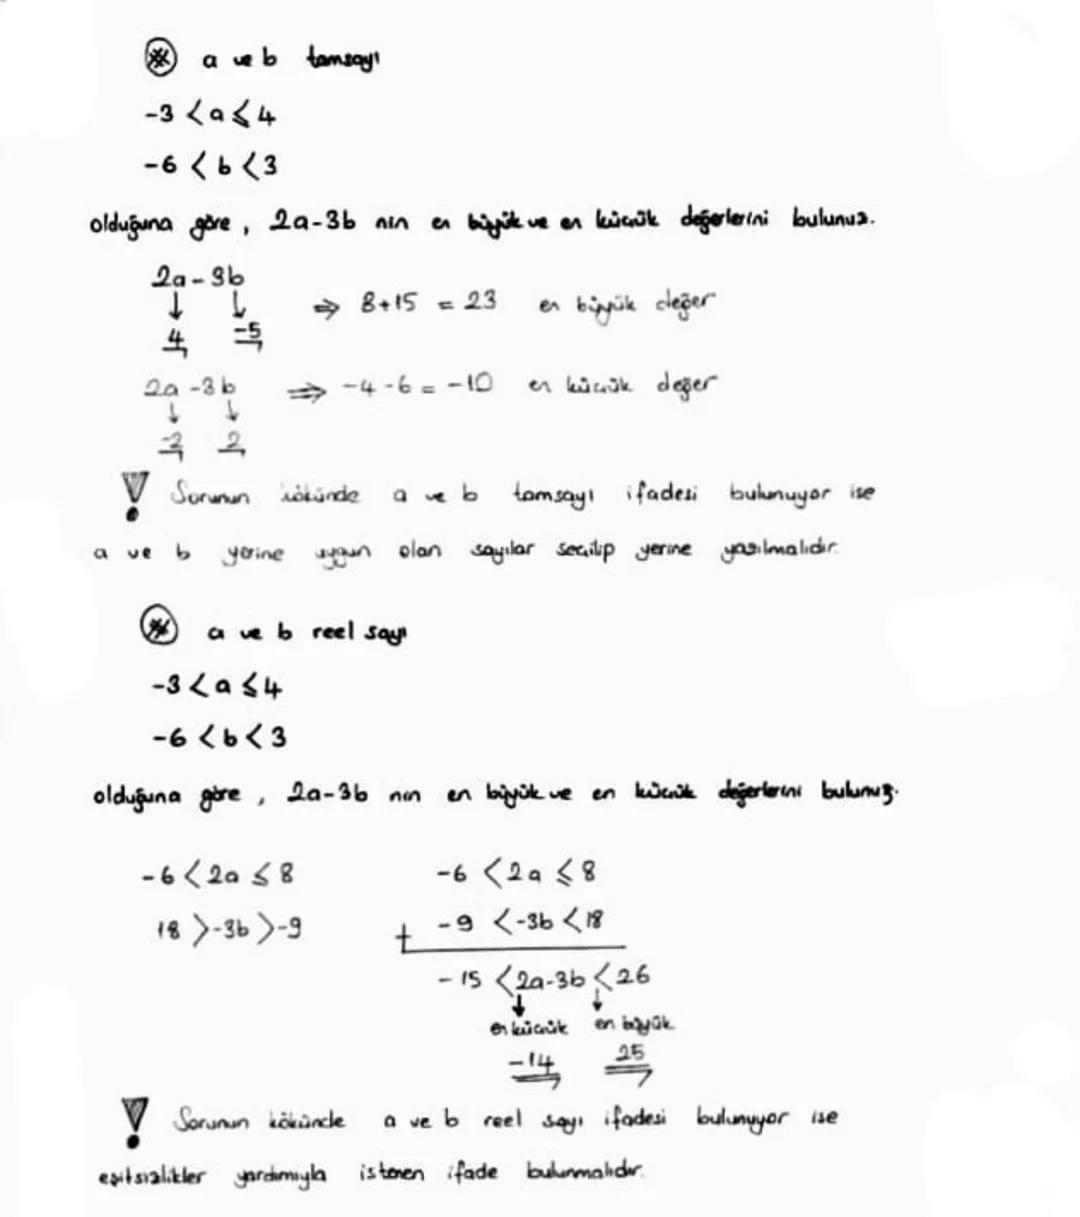 ※ a ve b tamsayı
-3 < a ≤ 4
-6 < b < 3
olduğuna göre, 2a-3b nin en büyük ve en küçük değerlerini bulunuz.
2a - 3b
↓ ↓ ⇒ 8+15 = 23 en büyük değer
4 -5
2a -3b ⇒ -4 -6 = -10 en küçük değer
↓ ↓
-2 2
! Sorunun kökünde a ve b tamsayı ifadesi bulunuyor ise
a ve b yerine uygun olan sayılar seçilip yerine yazılmalıdır.
※ a ve b reel sayı
-3 < a ≤ 4
-6 < b < 3
olduğuna göre, 2a-3b nin en büyük ve en küçük değerlerini bulunuz.
-6 < 2a ≤ 8 -6 < 2a ≤ 8
18 > -3b > -9 + -9 < -3b < 18
-15 < 2a-3b < 26
↓ ↓
en küçük en büyük
-14 25
! Sorunun kökünde a ve b reel sayı ifadesi bulunuyor ise
eşitsizlikler yardımıyla istenen ifade bulunmalıdır.